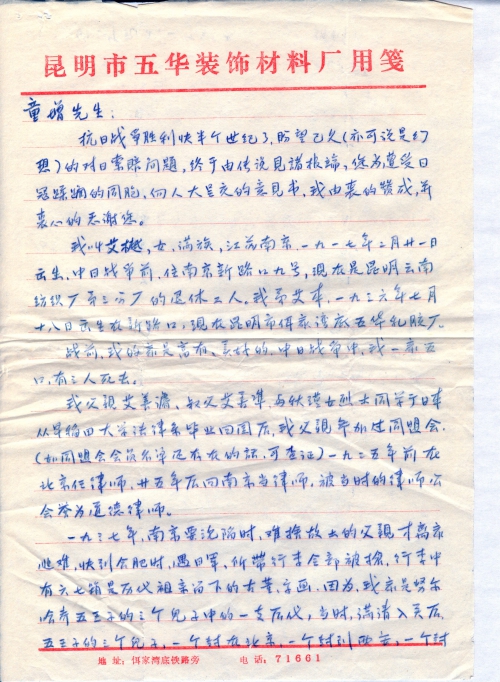 昆明市五华装饰材料厂用笺
童增先生：
抗日战争胜利快半个世纪了，盼望已久（亦可说是幻
想）的对日索赔问题，终于由传说见诸报端，您为蒙受日
寇蹂躏的同胞，向人大呈交的意见书，我由衷的赞成，并
衷心的感谢您。
我叫艾樾，女，满族，江苏南京，一九一七年二月廿一日
出生，中日战争前，住南京新路口九号，现在是昆明云南
纺织厂第三分厂的退休工人。我弟艾本，一九三六年七月
十八日出生在新路口，现在昆明市佴家湾底五华乳胶厂。
战前，我的家是富有、美好的，中日战争中，我一家五
口，有三人死去。
我父亲艾善濂、叔父艾善準，与伏瑾女烈士同学于日本
从早稻田大学法律系毕业回国后，我父亲参加过同盟会，
（如同盟会会员名单还存在的话，可查证）一九二五年前在
北京任律师，廿五年后回南京当律师，被当时的律师公
会誉为道德律师。
一九三七年，南京要沦陷时，难捨故土的父亲才离家
避难，快到合肥时，遇日军，所带行李全部被掠，行李中
有六七箱是历代祖亲留下的古董、字画，因为，我家是努尔
哈赤五王子的三个儿子中的一支后代，当时，满清入关后，
五王子的三个儿子，一个封在北京，一个封到西安，一个封
地址：佴家湾底铁路旁 电话：71661